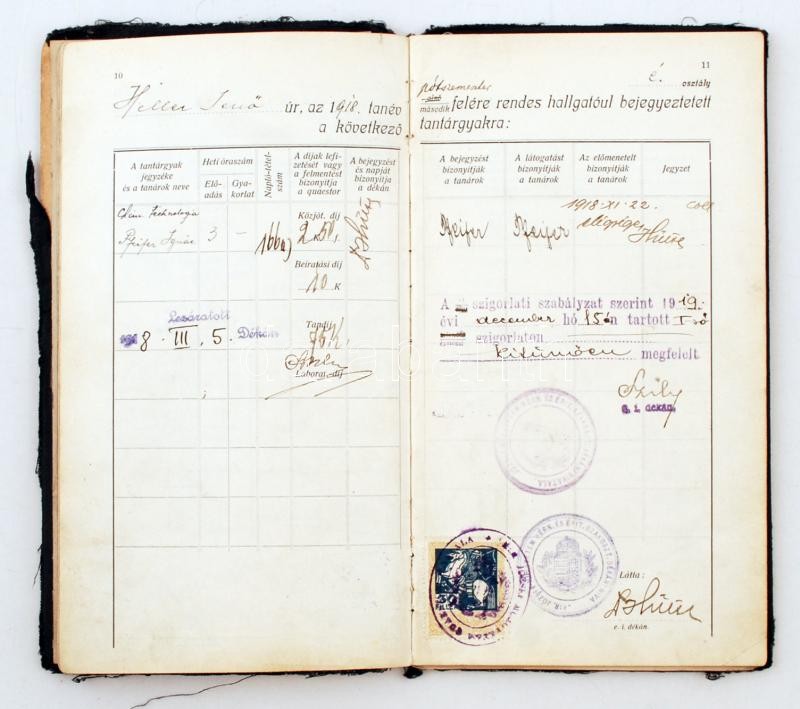 10
Heller Jenő úr, az 1918. tanév
a következő
A tantárgyak jegyzéke és a tanárok neve
Heti óraszám
Előadás
Gyakorlat
Napló-tétel-szám
A díjak lefizetését vagy a felmentést bizonyítja a quaestor
A bejegyzést és napját bizonyítja a dékán
Chem. Technologia
Pfeifer Ignác 3 —
166a)
Közjót. díj
2.50
Beiratási díj
10 K
Lezáratott
1918. III. 5. Dékán
Tandíj
75 K.
Laborat. díj
11
pótszemester é. osztály
első
második felére rendes hallgatóul bejegyeztetett
tantárgyakra:
A bejegyzést bizonyítják a tanárok
A látogatást bizonyítják a tanárok
Az előmenetelt bizonyítják a tanárok
Jegyzet
Pfeifer Pfeifer
1918-XI-22. coll
elégséges
A szigorlati szabályzat szerint 1919.
évi december hó 15én tartott I-ső
szigorlaton
kitűnően megfelelt
Szily
e. i. dékán.
Látta:
e. i. dékán.